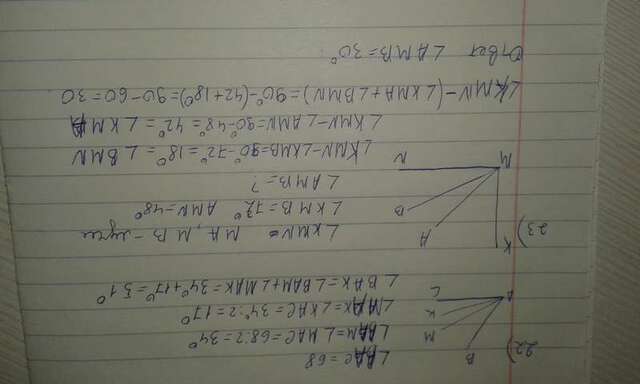 22)
B
M
K
A
C
∠BAC = 68
∠BAM = ∠MAC = 68:2 = 34°
∠MAK = ∠KAC = 34°:2 = 17°
∠BAK = ∠BAM + ∠MAK = 34° + 17° = 51°
23)
K
A
B
M
N
∠KMN MA, MB – лучи
∠KMB = 72° AMN – 48°
∠AMB = ?
∠KMN – ∠KMB = 90° – 72° = 18° = ∠BMN
∠KMN – ∠AMN = 90 – 48° = 42° = ∠KMA
∠KMN – (∠KMA + ∠BMN) = 90° – (42 + 18°) = 90 – 60 = 30
Ответ ∠AMB = 30°